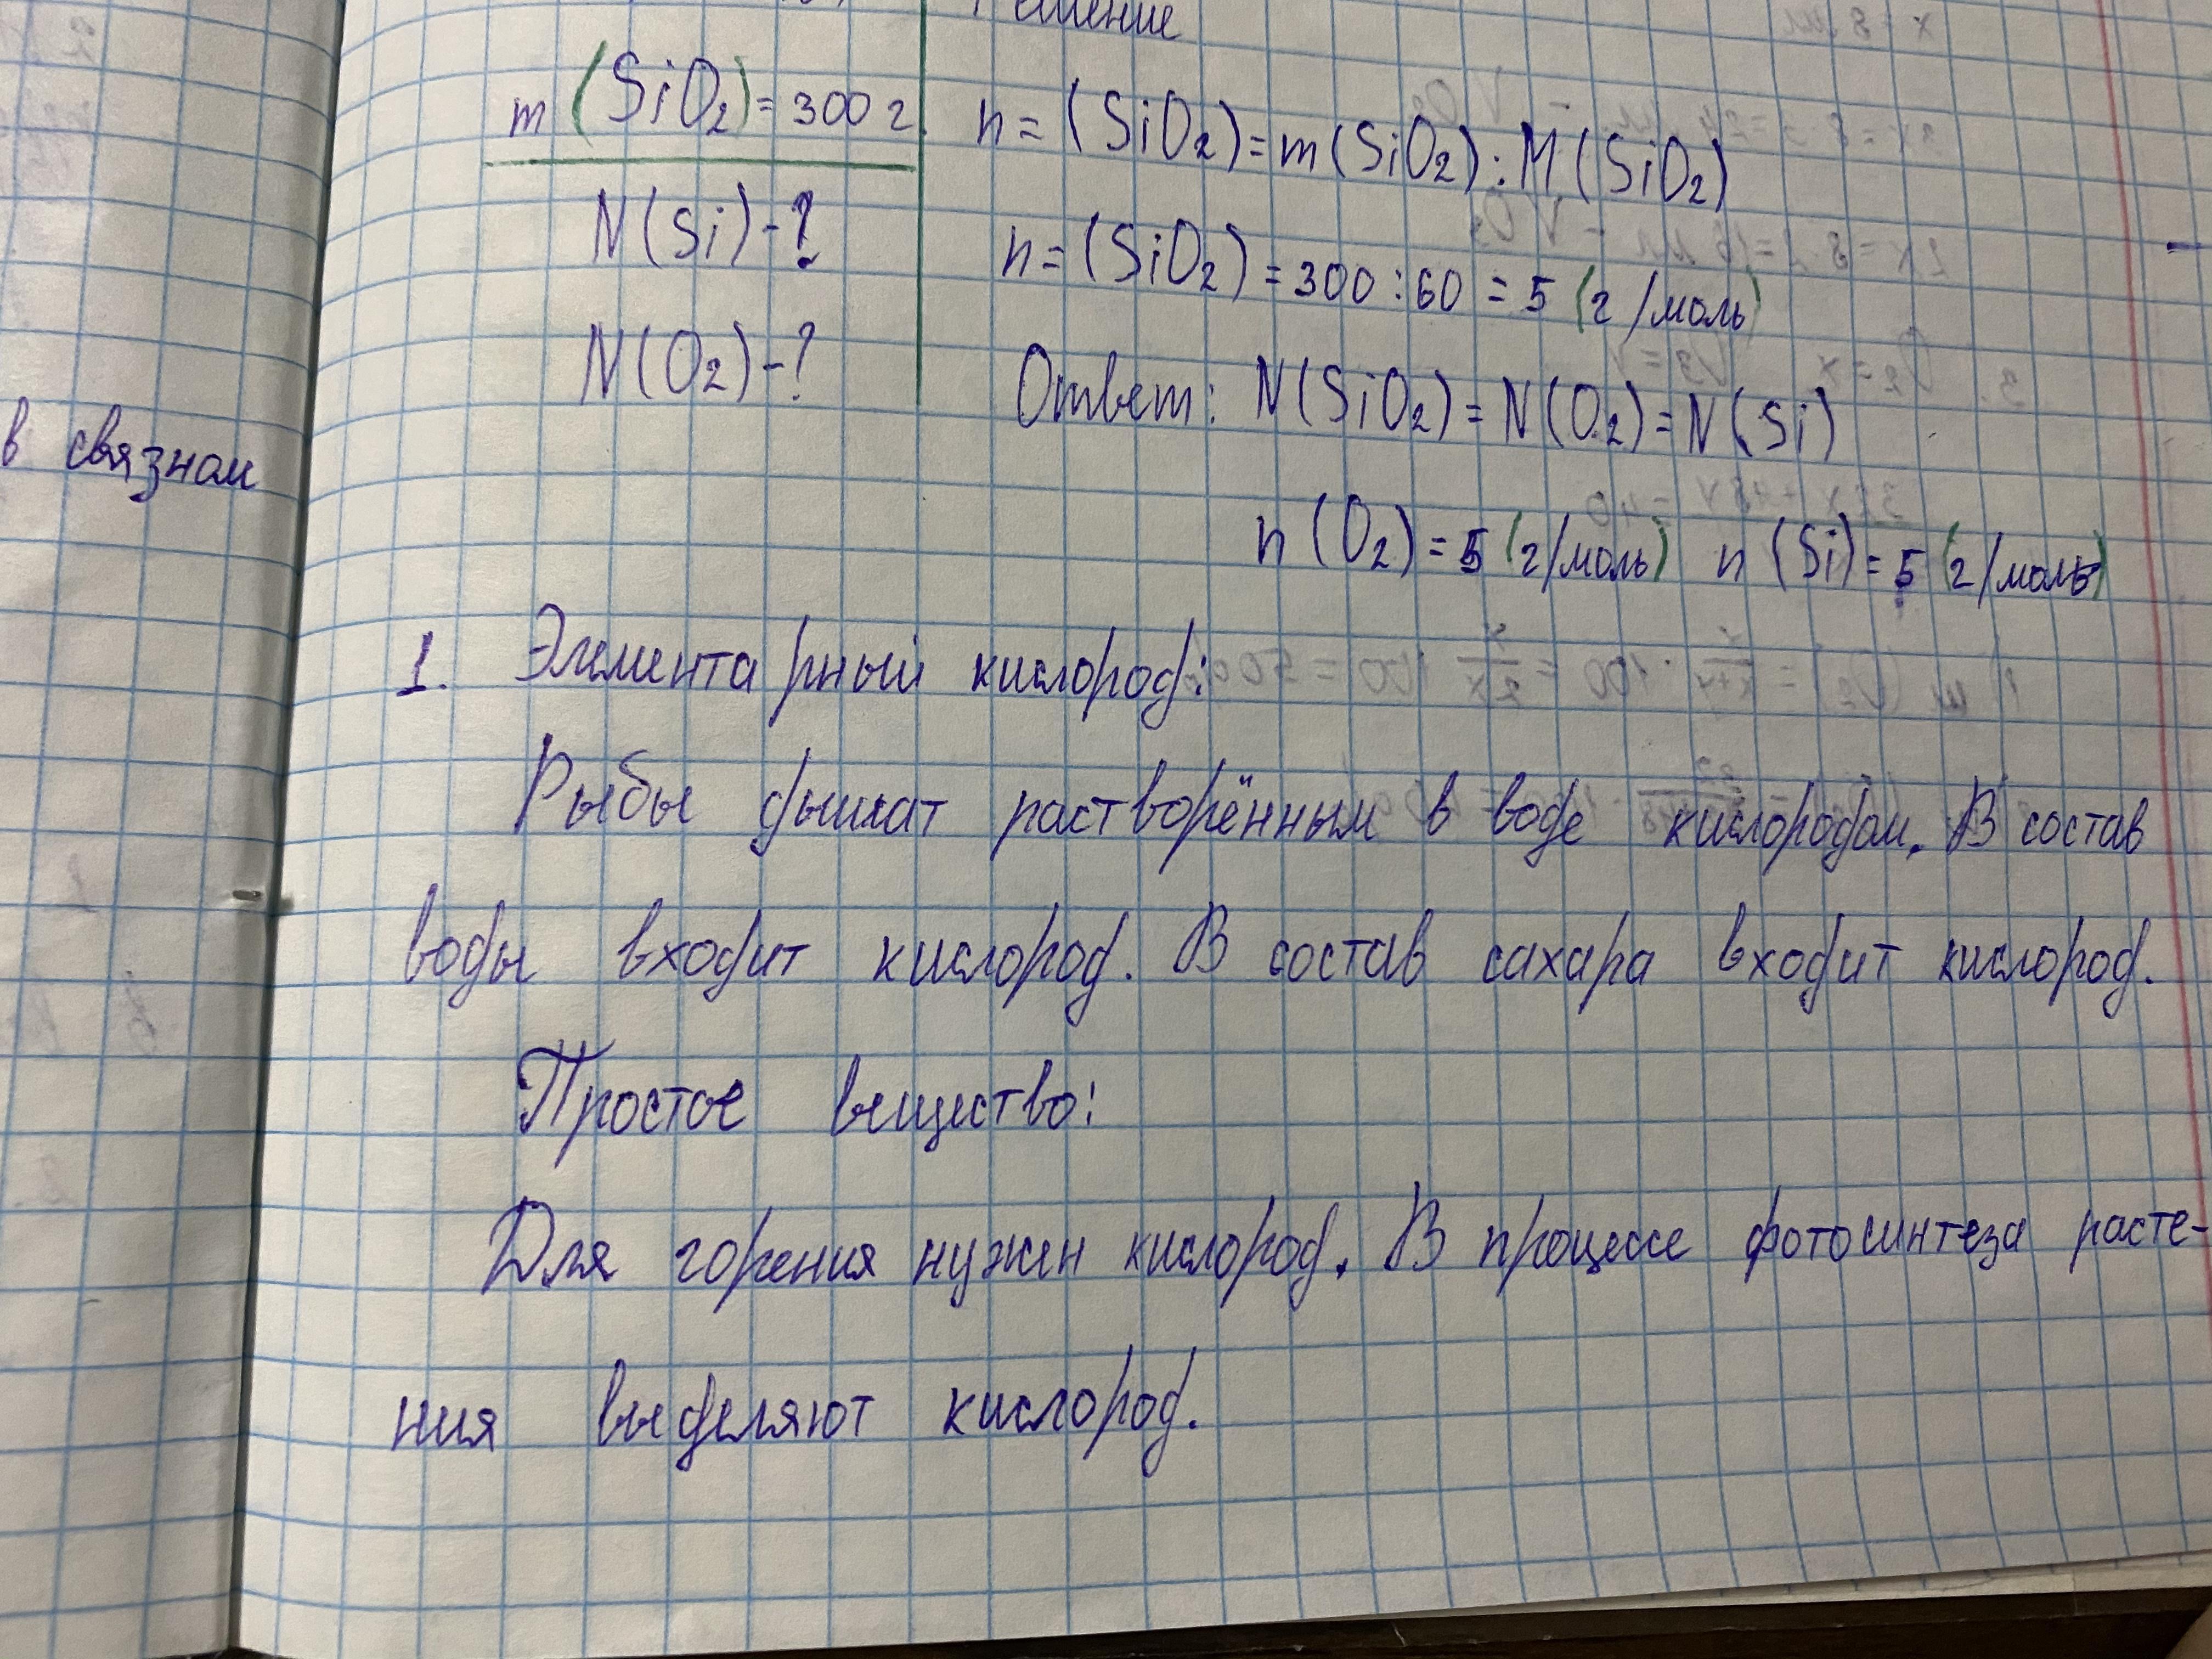 Решение
m (SiO2) = 300 г.
n = (SiO2) = m(SiO2) : M (SiO2)
N(Si) - ?
n = (SiO2) = 300 : 60 = 5 (г/моль)
N(O2) - ?
Ответ: N(SiO2) = N(O2) = N(Si)
в связном
n (O2) = 5 (г/моль) n (Si) = 5 (г/моль)
1. Элементарный кислород:
Рыбы дышат растворённым в воде кислородом. В состав
воды входит кислород. В состав сахара входит кислород.
Простое вещество:
Для горения нужен кислород. В процессе фотосинтеза расте-
ния выделяют кислород.